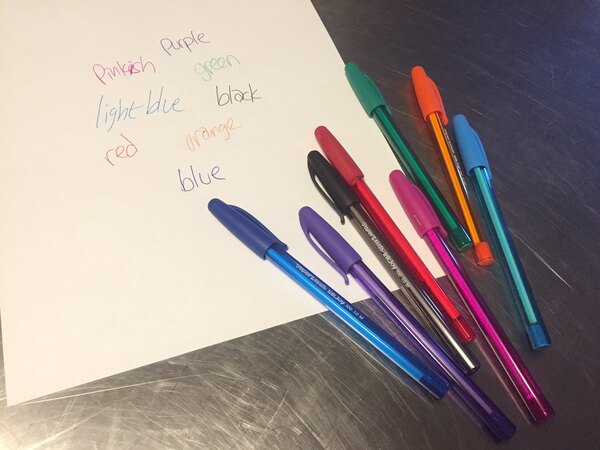 purple
pinkish
green
light blue
black
red
orange
blue